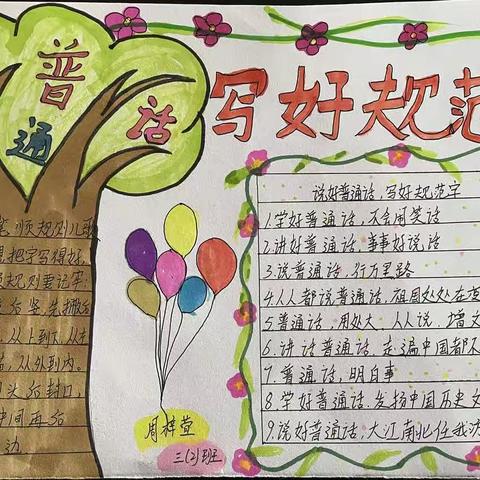 普通话
写好规范
笔顺规则儿歌
把字写得好
规则要记牢
后竖,先撇后
从上到下,从左
从外到内。
头后封口,
中间再后
边
说好普通话,写好规范字
1.学好普通话,不会闹笑话
2.讲好普通话,事事好说话
3.说普通话,行万里路
4.人人都说普通话,祖国处处在变
5.普通话,用处大,人人说,增文
6.讲话普通话,走遍中国都不
7.普通话,明白事
8.学好普通话,发扬中国历史文
9.说好普通话,大江南北任我
周梓萱
三(2)班